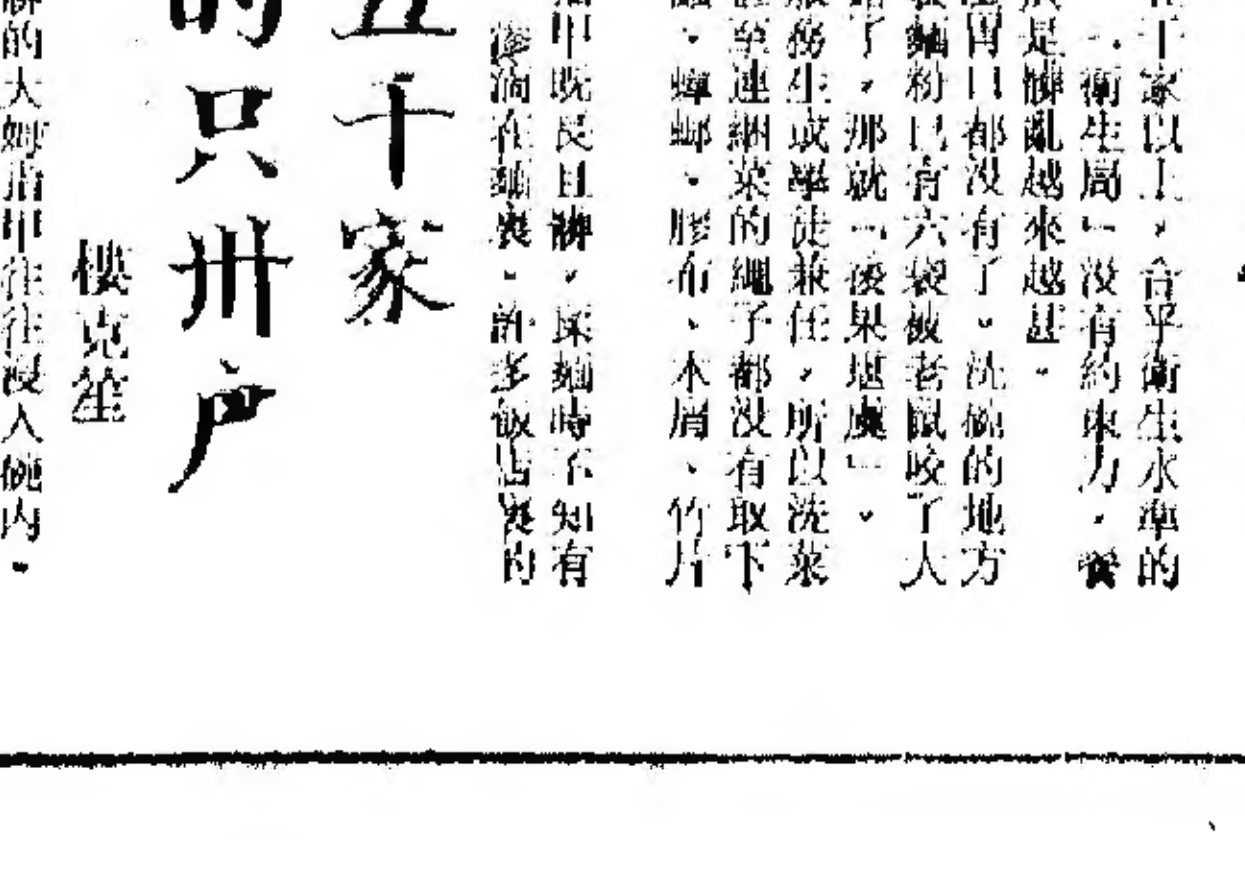 千家以上，合乎衛生水準的
「衛生局」没有約束力，餐
是髒亂越來越甚。
胃口都没有了。洗碗的地方
麵粉已有六袋被老鼠咬了人
了，那就「後果堪虞」。
務生或學徒兼任，所以洗菜
至連綑菜的繩子都没有取下
、蟑螂、膠布、木屑、竹片
甲既長且髒，揉麵時不知有
滲淌在麵裏。許多飯店裏的
五千家
的只卅户
樓克笙
的大姆指甲往往浸入碗内。